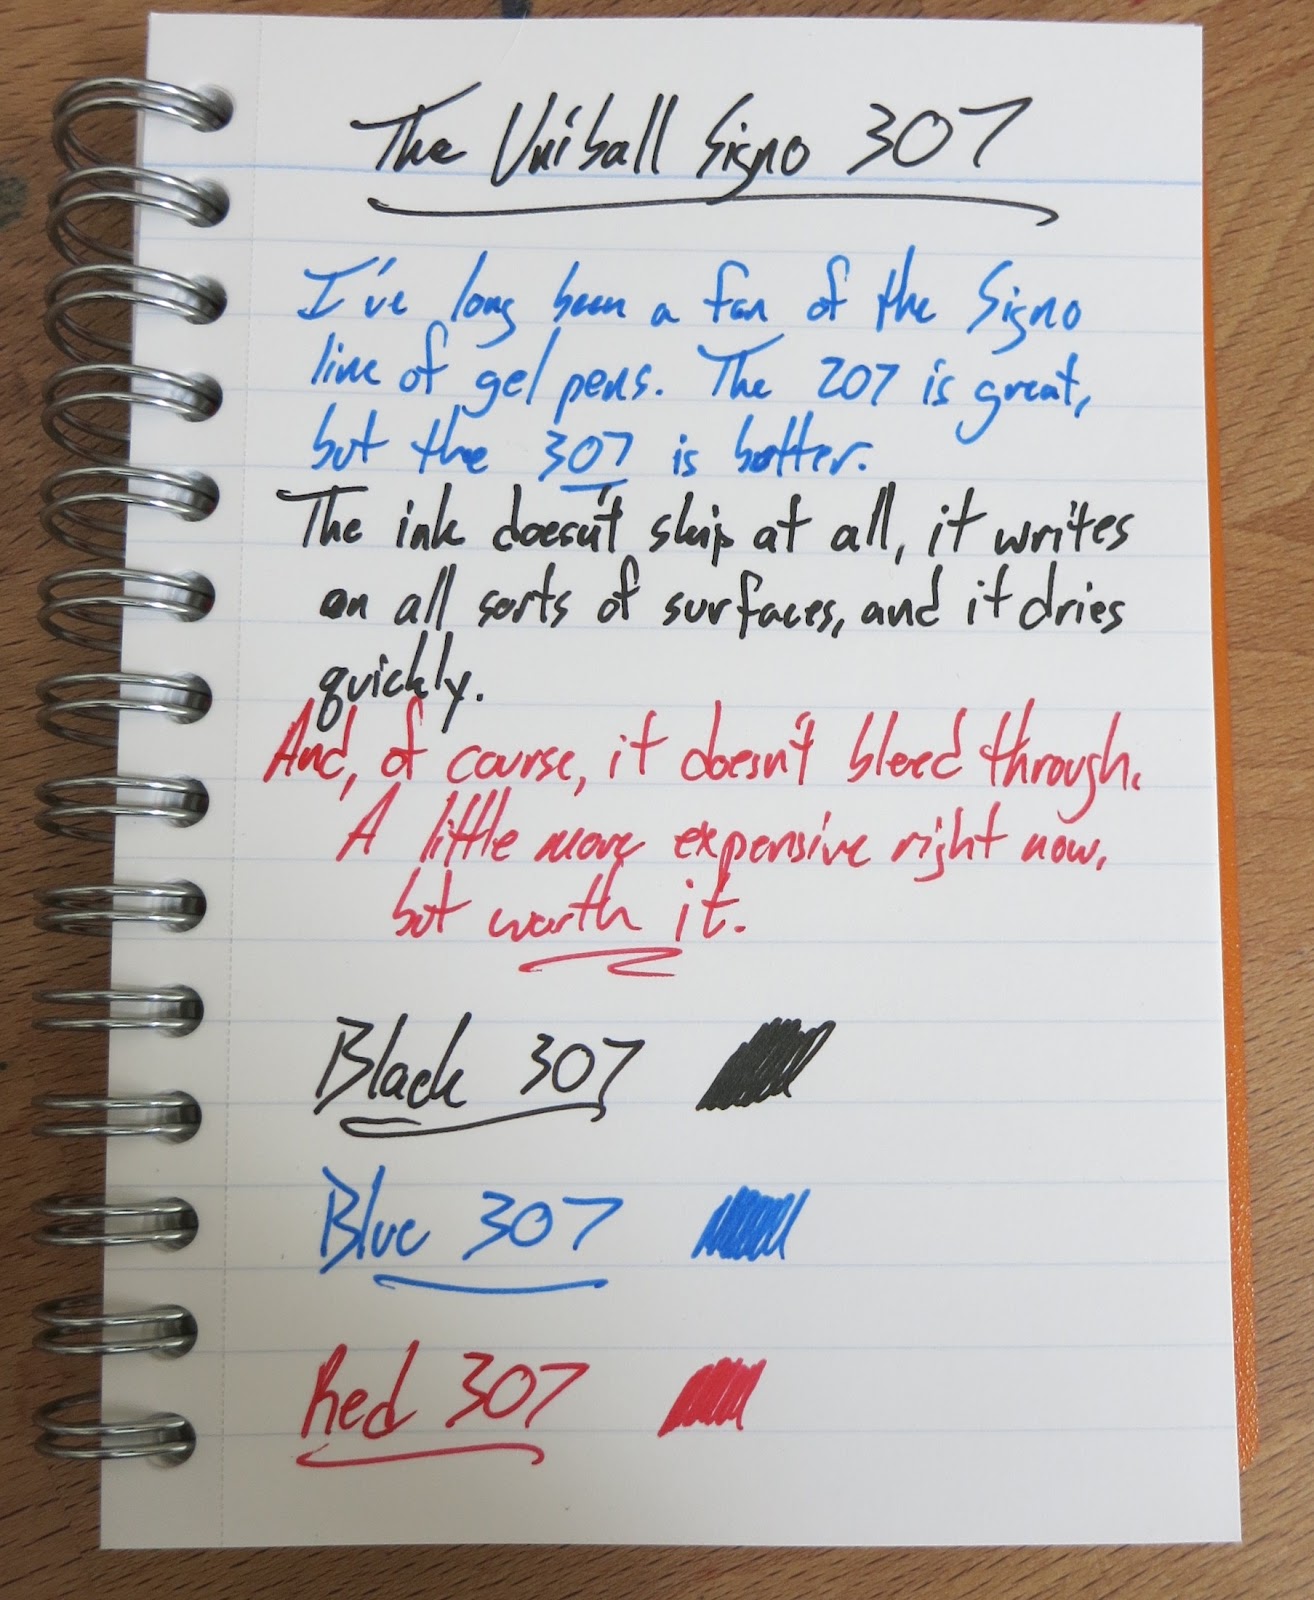 The Uniball Signo 307
I've long been a fan of the Signo
line of gel pens. The 207 is great,
but the 307 is better.
The ink doesn't skip at all, it writes
on all sorts of surfaces, and it dries
quickly.
And, of course, it doesn't bleed through.
A little more expensive right now,
but worth it.
Black 307
Blue 307
Red 307